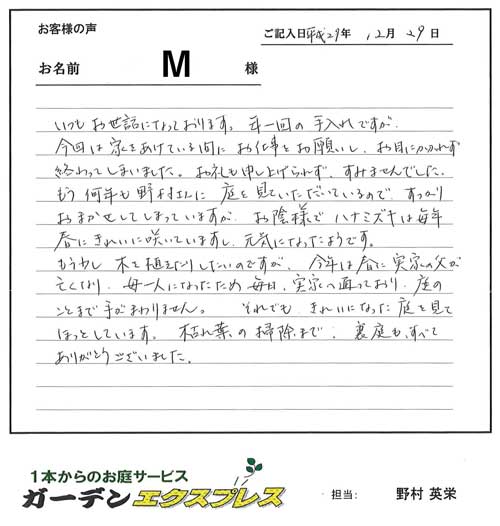 お客様の声
ご記入日 平成29年 12月 29日
お名前 M 様
いつもお世話になっております。年一回の手入れですが、
今回は家をあけている間にお仕事をお願いし、お目にかかれず
終わってしまいました。お礼も申し上げられず、すみませんでした。
もう何年も野村さんに庭を見ていただいているので、すっかり
おまかせしてしまっていますが、お陰様でハナミズキは毎年
春にきれいに咲いていますし、元気になったようです。
もう少し木を植えたりしたいのですが、今年は春に実家の父が
亡くなり、母一人になったため毎日、実家へ通っており、庭の
ことまで手がまわりません。それでも、きれいになった庭を見て
ほっとしています。枯れ葉の掃除まで、裏庭も、すべて
ありがとうございました。
1本からのお庭サービス
ガーデンエクスプレス
担当: 野村 英栄